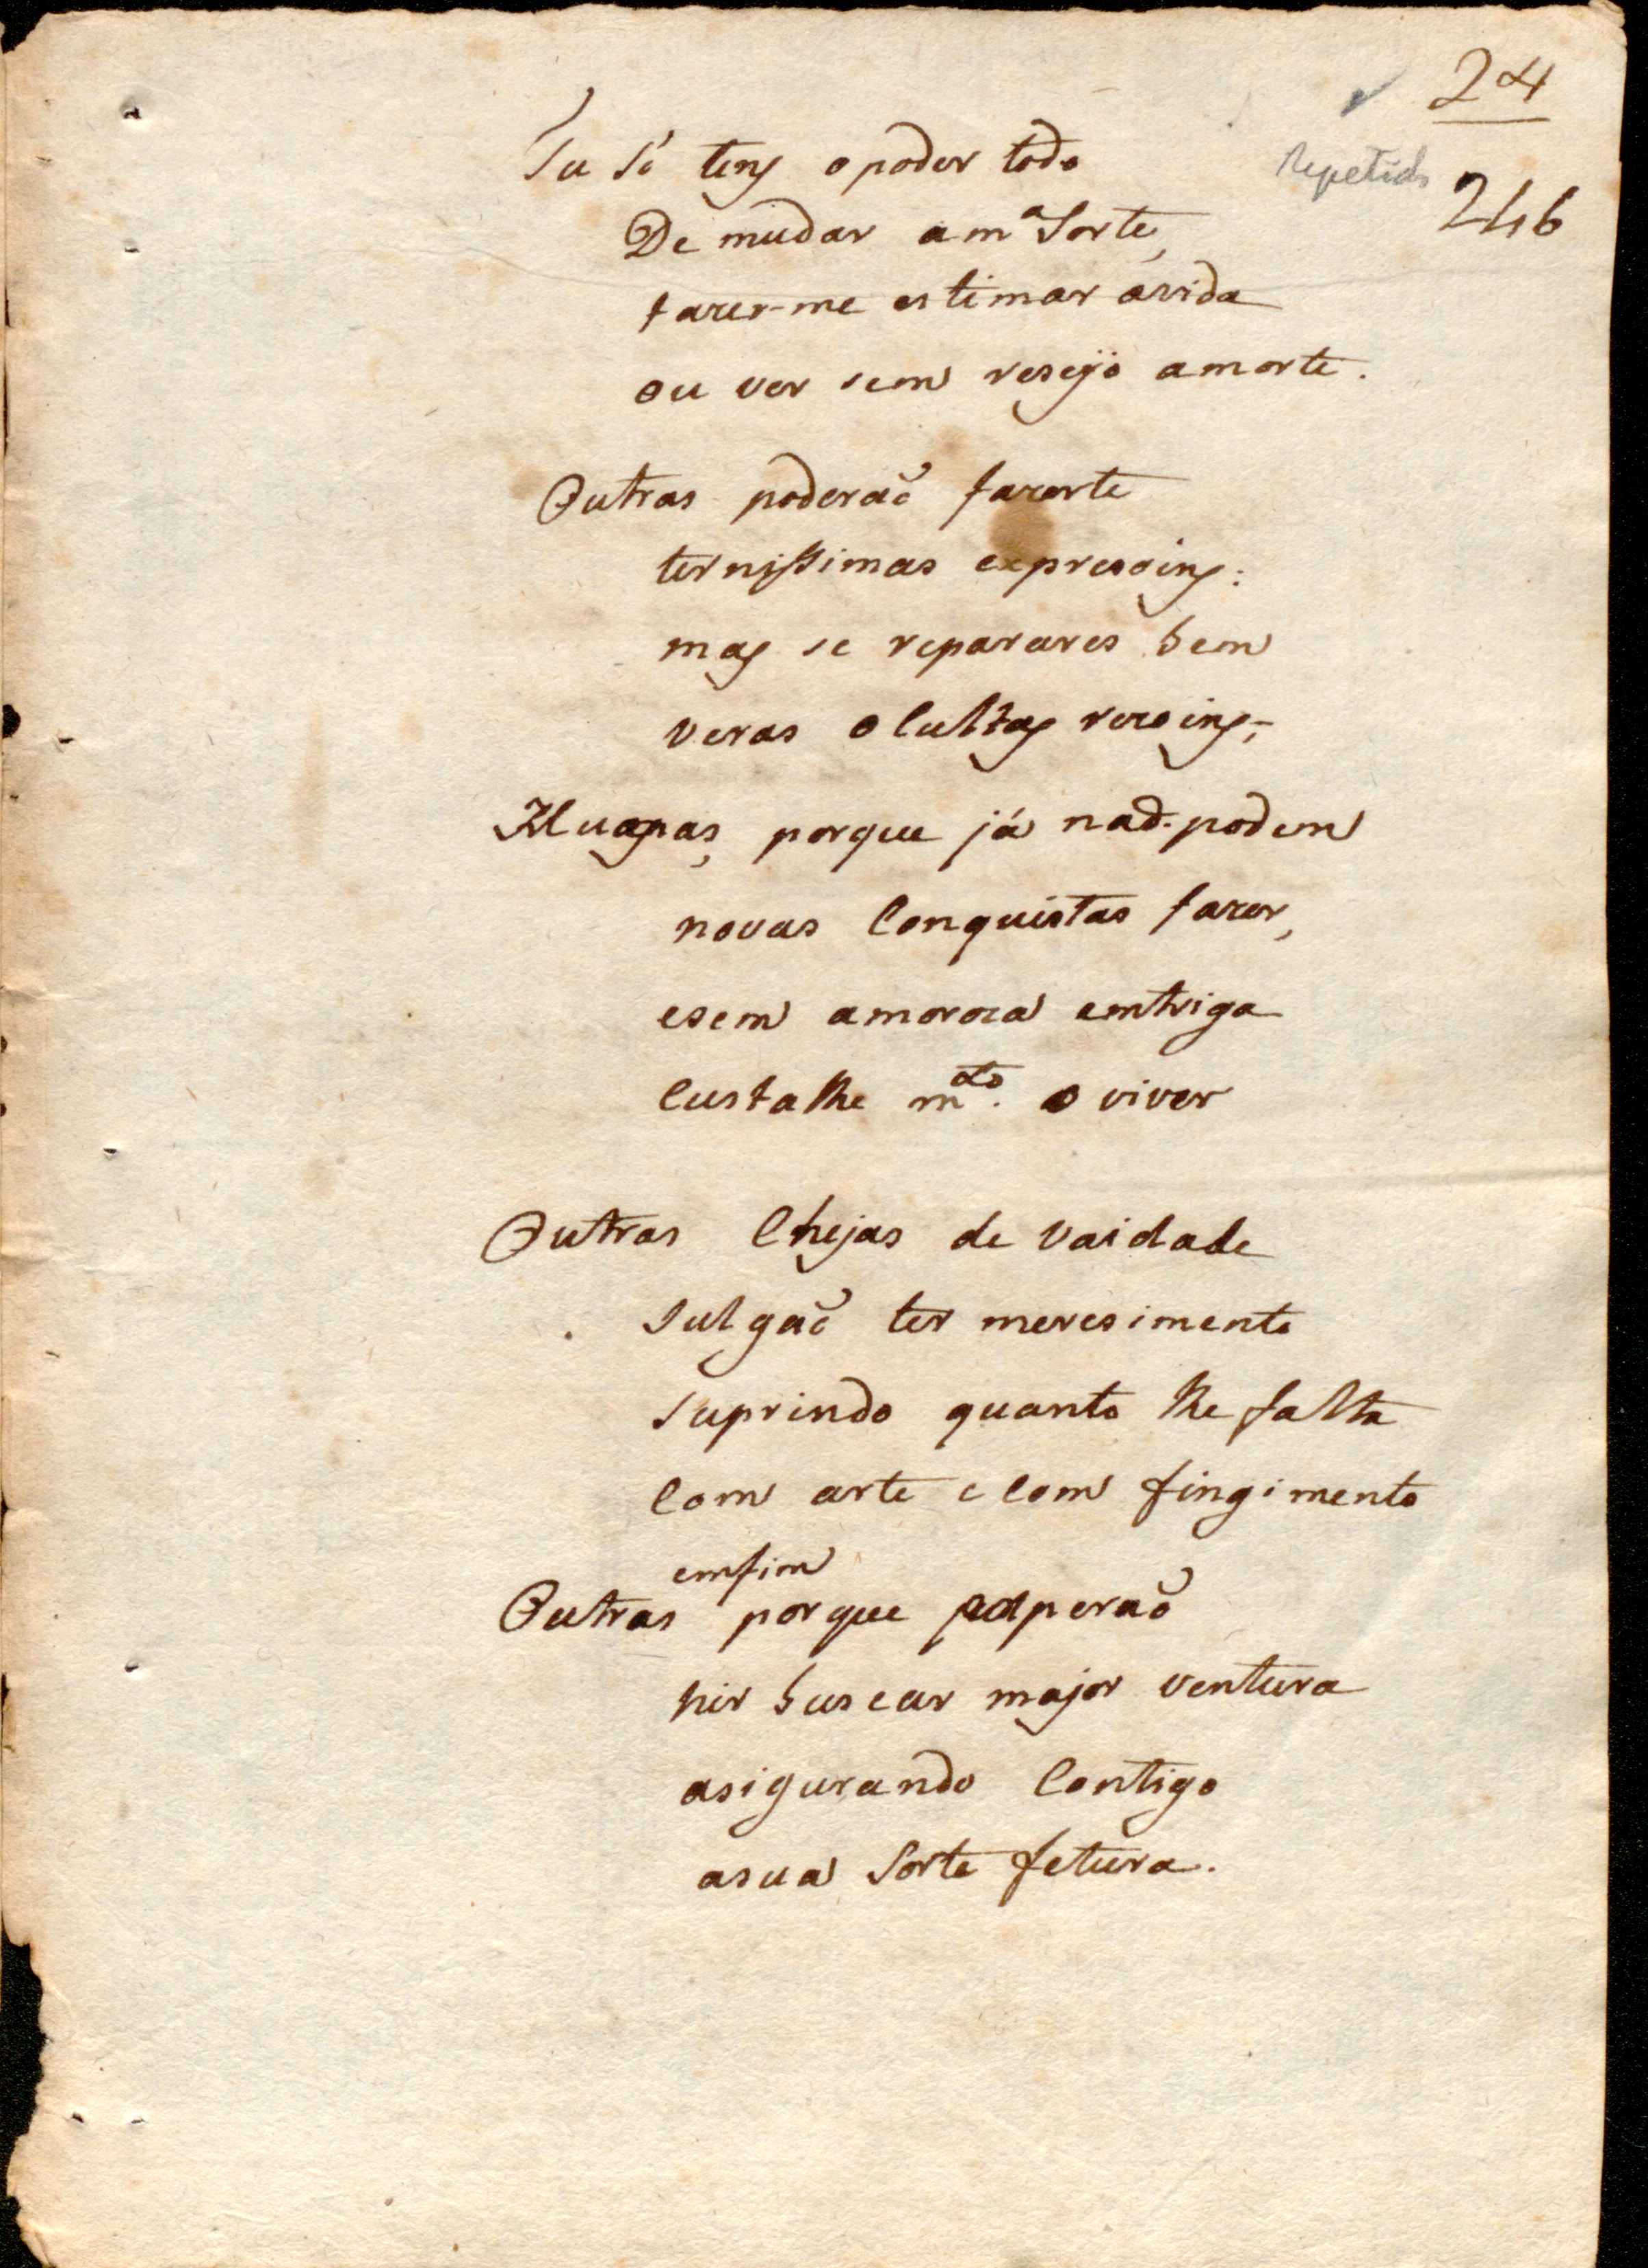 24
repetido
246
Tu só tens o poder todo
De mudar a mª Sorte,
fazer-me estimar avida
ou ver sem resejo amorte.
Outras poderaõ fazerte
ternissimas expresoins:
mas se reparares bem
veras ocultas rezoins;
Humas, porque já naõ podem
novas Conquistas fazer,
esem amoroza emtriga
Custalhe mto. o viver
Outras Chejas de vaidade
Julgaõ ter meresimento
Suprindo quanto lhe falta
Com arte e Com fingimento
emfim
Outras porque esperaõ
hir buscar major ventura
asigurando Contigo
asua Sorte fetura.